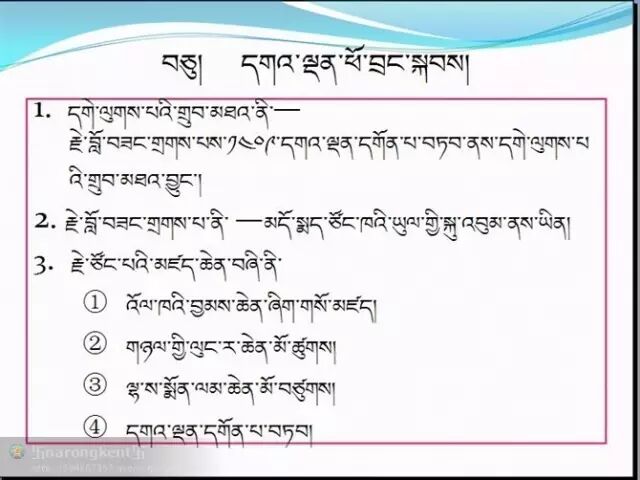 བཅུ། དགའ་ལྡན་ཕོ་བྲང་སྐབས།
1. དགེ་ལུགས་པའི་གྲུབ་མཐའ་ནི་—
རྗེ་བློ་བཟང་གྲགས་པས་༡༤༠༩་དགའ་ལྡན་དགོན་པ་བཏབ་ནས་དགེ་ལུགས་པ
འི་གྲུབ་མཐའ་བྱུང་།
2. རྗེ་བློ་བཟང་གྲགས་པ་ནི་ —མདོ་སྨད་ཙོང་ཁའི་ཡུལ་གྱི་སྐུ་འབུམ་ནས་ཡིན།
3. རྗེ་ཙོང་པའི་མཛད་ཆེན་བཞི་ནི་
① འོལ་ཁའི་བྱམས་ཆེན་ཞིག་གསོ་མཛད།
② གཉལ་གྱི་ལུང་ར་ཆེན་མོ་ཚུགས།
③ ལྷ་ས་སྨོན་ལམ་ཆེན་མོ་བཙུགས།
④ དགའ་ལྡན་དགོན་པ་བཏབ།